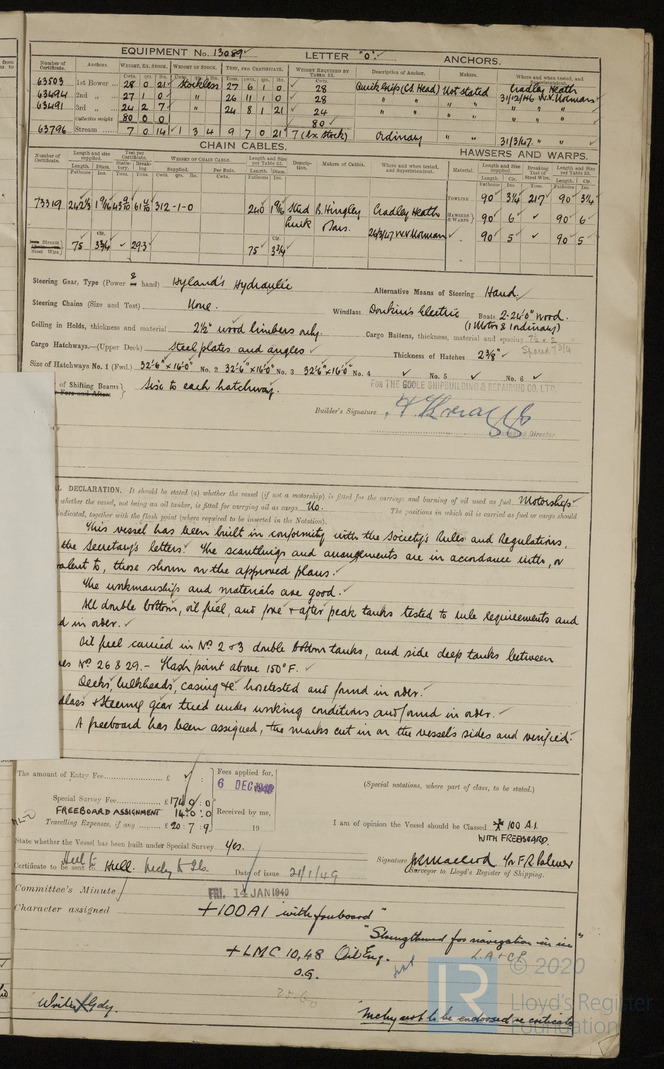 EQUIPMENT No. 13089 LETTER "O" ANCHORS.
Number of Certificate. Anchors. WEIGHT, EX. STOCK. WEIGHT OF STOCK. TEST, PER CERTIFICATE. WEIGHT REQUIRED BY TABLE 22. Description of Anchor. Makers. Where and when tested, and Superintendent.
63503 1st Bower 28 0 21 Stockless 27 6 1 0 28 Quick Grip (C.S. Head) Not stated Cradley Heath
63494 2nd " 27 1 0 " 26 11 1 0 28 " " " " 31/12/46 W.V. Norman
63491 3rd " 24 2 7 " 24 8 1 21 24 " " " "
Collective weight 80 0 0 80
63796 Stream 7 0 14 1 3 4 9 7 0 21 7 (ex stock) Ordinary " " 31/3/47 " "
CHAIN CABLES. HAWSERS AND WARPS.
Number of Certificate. Length and size supplied. Test per Certificate. WEIGHT OF CHAIN CABLE. Length and Size per Table 22. Description. Makers of Cables. Where and when tested, and Superintendent. Material. Length and Size supplied. Breaking Test of Steel Wire. Length and Size per Table 22.
73319 242½ 1 9/16 312-1-0 240 1 9/16 Stud Link B. Hingley Sons. Cradley Heath 26/3/47 W.V. Norman
TOWLINE 90 3¼ 217 90 3¼
HAWSERS & WARPS 90 6 90 6
90 5 90 5
Stream Steel Wire 75 3¾ 29.3 75 3¾
Steering Gear, Type (Power & hand) Hyland's Hydraulic Alternative Means of Steering Hand.
Steering Chains (Size and Test) None. Windlass Donkin's Electric Boats 2-24'0" Wood.
(1 Motor & 1 ordinary)
Ceiling in Holds, thickness and material 2½" wood limbers only. Cargo Battens, thickness, material and spacing
Cargo Hatchways.—(Upper Deck) Steel plates and angles Thickness of Hatches 2⅜"
Size of Hatchways No. 1 (Fwd.) 32'6" x 16'0" No. 2 32'6" x 16'0" No. 3 32'6" x 16'0" No. 4 No. 5 No. 6
of Shifting Beams Six to each hatchway.
Fore and After
For THE GOOLE SHIPBUILDING & REPAIRING CO. LTD.
Builder's Signature
Director
DECLARATION. It should be stated (a) whether the vessel (if not a motorship) is fitted for the carriage and burning of oil used as fuel Motorship
whether the vessel, not being an oil tanker, is fitted for carrying oil as cargo No. The positions in which oil is carried as fuel or cargo should
indicated, together with the flash point (where required to be inserted in the Notation).
This vessel has been built in conformity with the Society's Rules and Regulations,
the Secretary's letters. The scantlings and arrangements are in accordance with, or
alent to, those shown on the approved plans.
The workmanship and materials are good.
All double bottom, oil fuel, and fore & after peak tanks tested to rule requirements and
d in order.
Oil fuel carried in Nº 2 & 3 double bottom tanks, and side deep tanks between
es Nº 26 & 29.- Flash point above 150°F.
Decks, bulkheads, casing &c. hosetested and found in order.
dlass & steering gear tried under working conditions and found in order.
A freeboard has been assigned, the marks cut in on the vessel's sides and verified.
The amount of Entry Fee £
Special Survey Fee £174:0:0
FREEBOARD ASSIGNMENT 14:0:0
Travelling Expenses, if any £20:7:9
Fees applied for,
6 DEC 1948
Received by me,
19
(Special notations, where part of class, to be stated.)
I am of opinion the Vessel should be Classed ✠ 100 A1
WITH FREEBOARD.
State whether the Vessel has been built under Special Survey Yes.
Signature for F.R. Palmer
Surveyor to Lloyd's Register of Shipping.
Certificate to be sent to Hull. Date of issue 21/1/49
Committee's Minute FRI. 14 JAN 1949
Character assigned +100A1 "with freeboard"
"Strengthened for navigation in ice"
+LMC 10,48 Oil Eng. L.A & C.P.
O.G.
© 2020
Lloyd's Register
Foundation